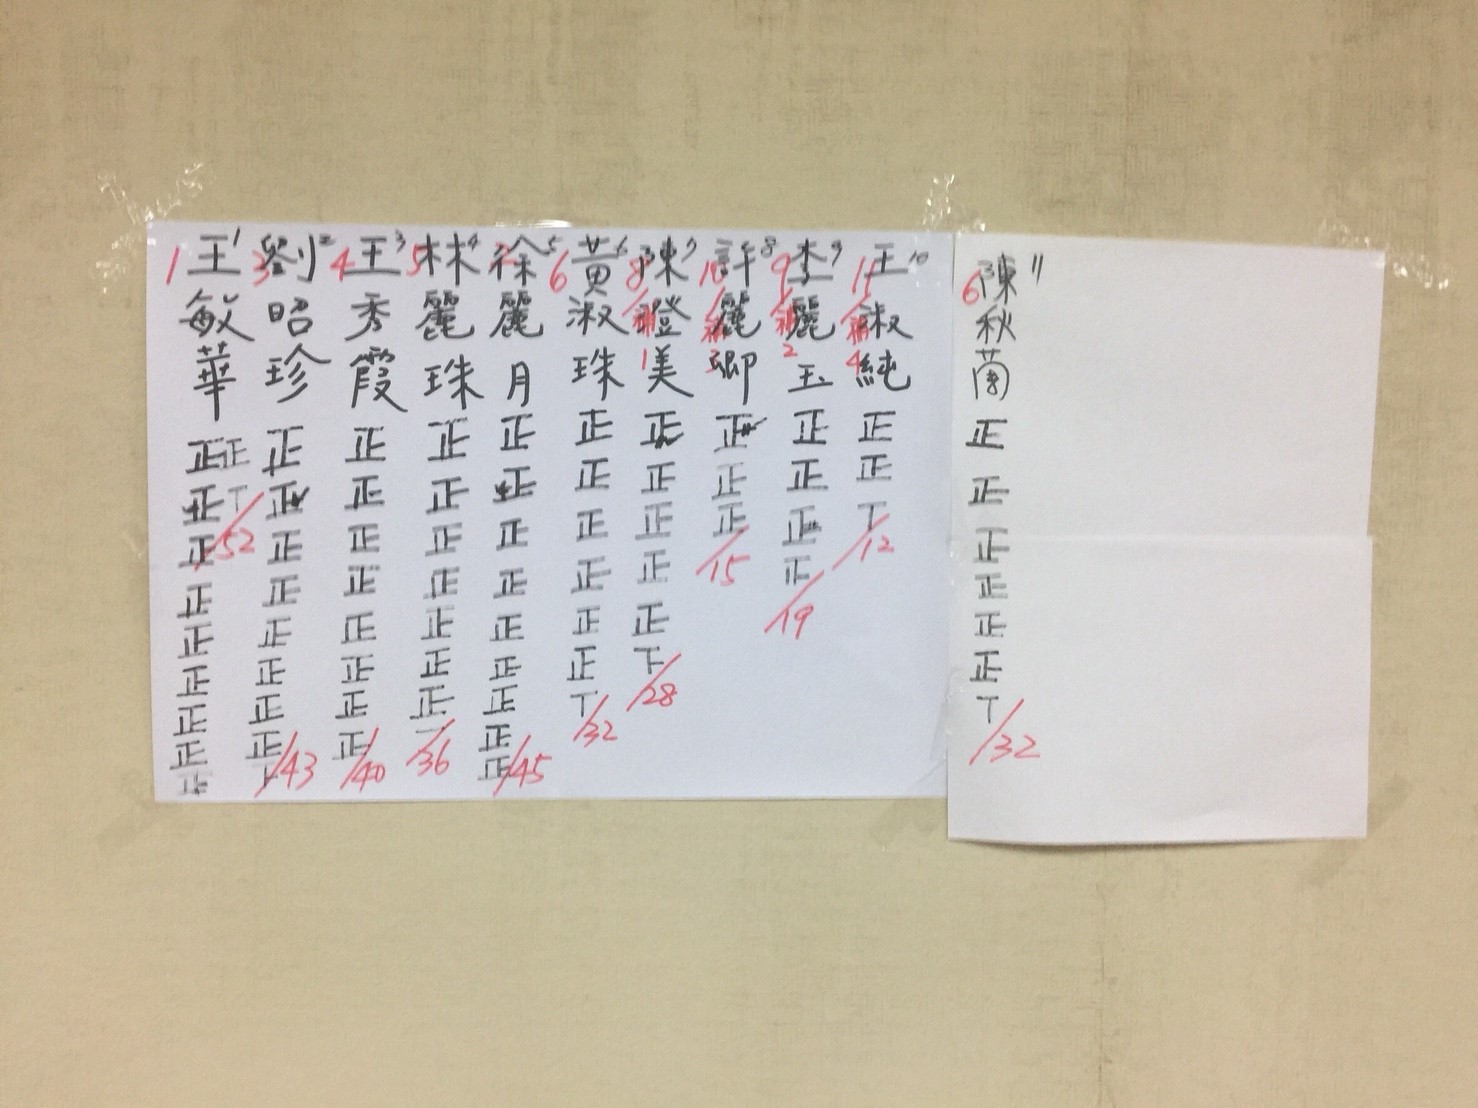 1 王敏華 1
正正正正正正正正正正丅
52
3 劉昭珍 2
正正正正正正正正下
43
4 王秀霞 3
正正正正正正正正
40
5 林麗珠 4
正正正正正正正一
36
2 徐麗月 5
正正正正正正正正正
45
6 黃淑珠 6
正正正正正正丅
32
8 補1 陳證美 7
正正正正正下
28
10 補3 許麗卿 8
正正正
15
9 補2 李麗玉 9
正正正正
19
11 補4 王淑純 10
正正丅
12
6 陳秋蘭 11
正正正正正正丅
32